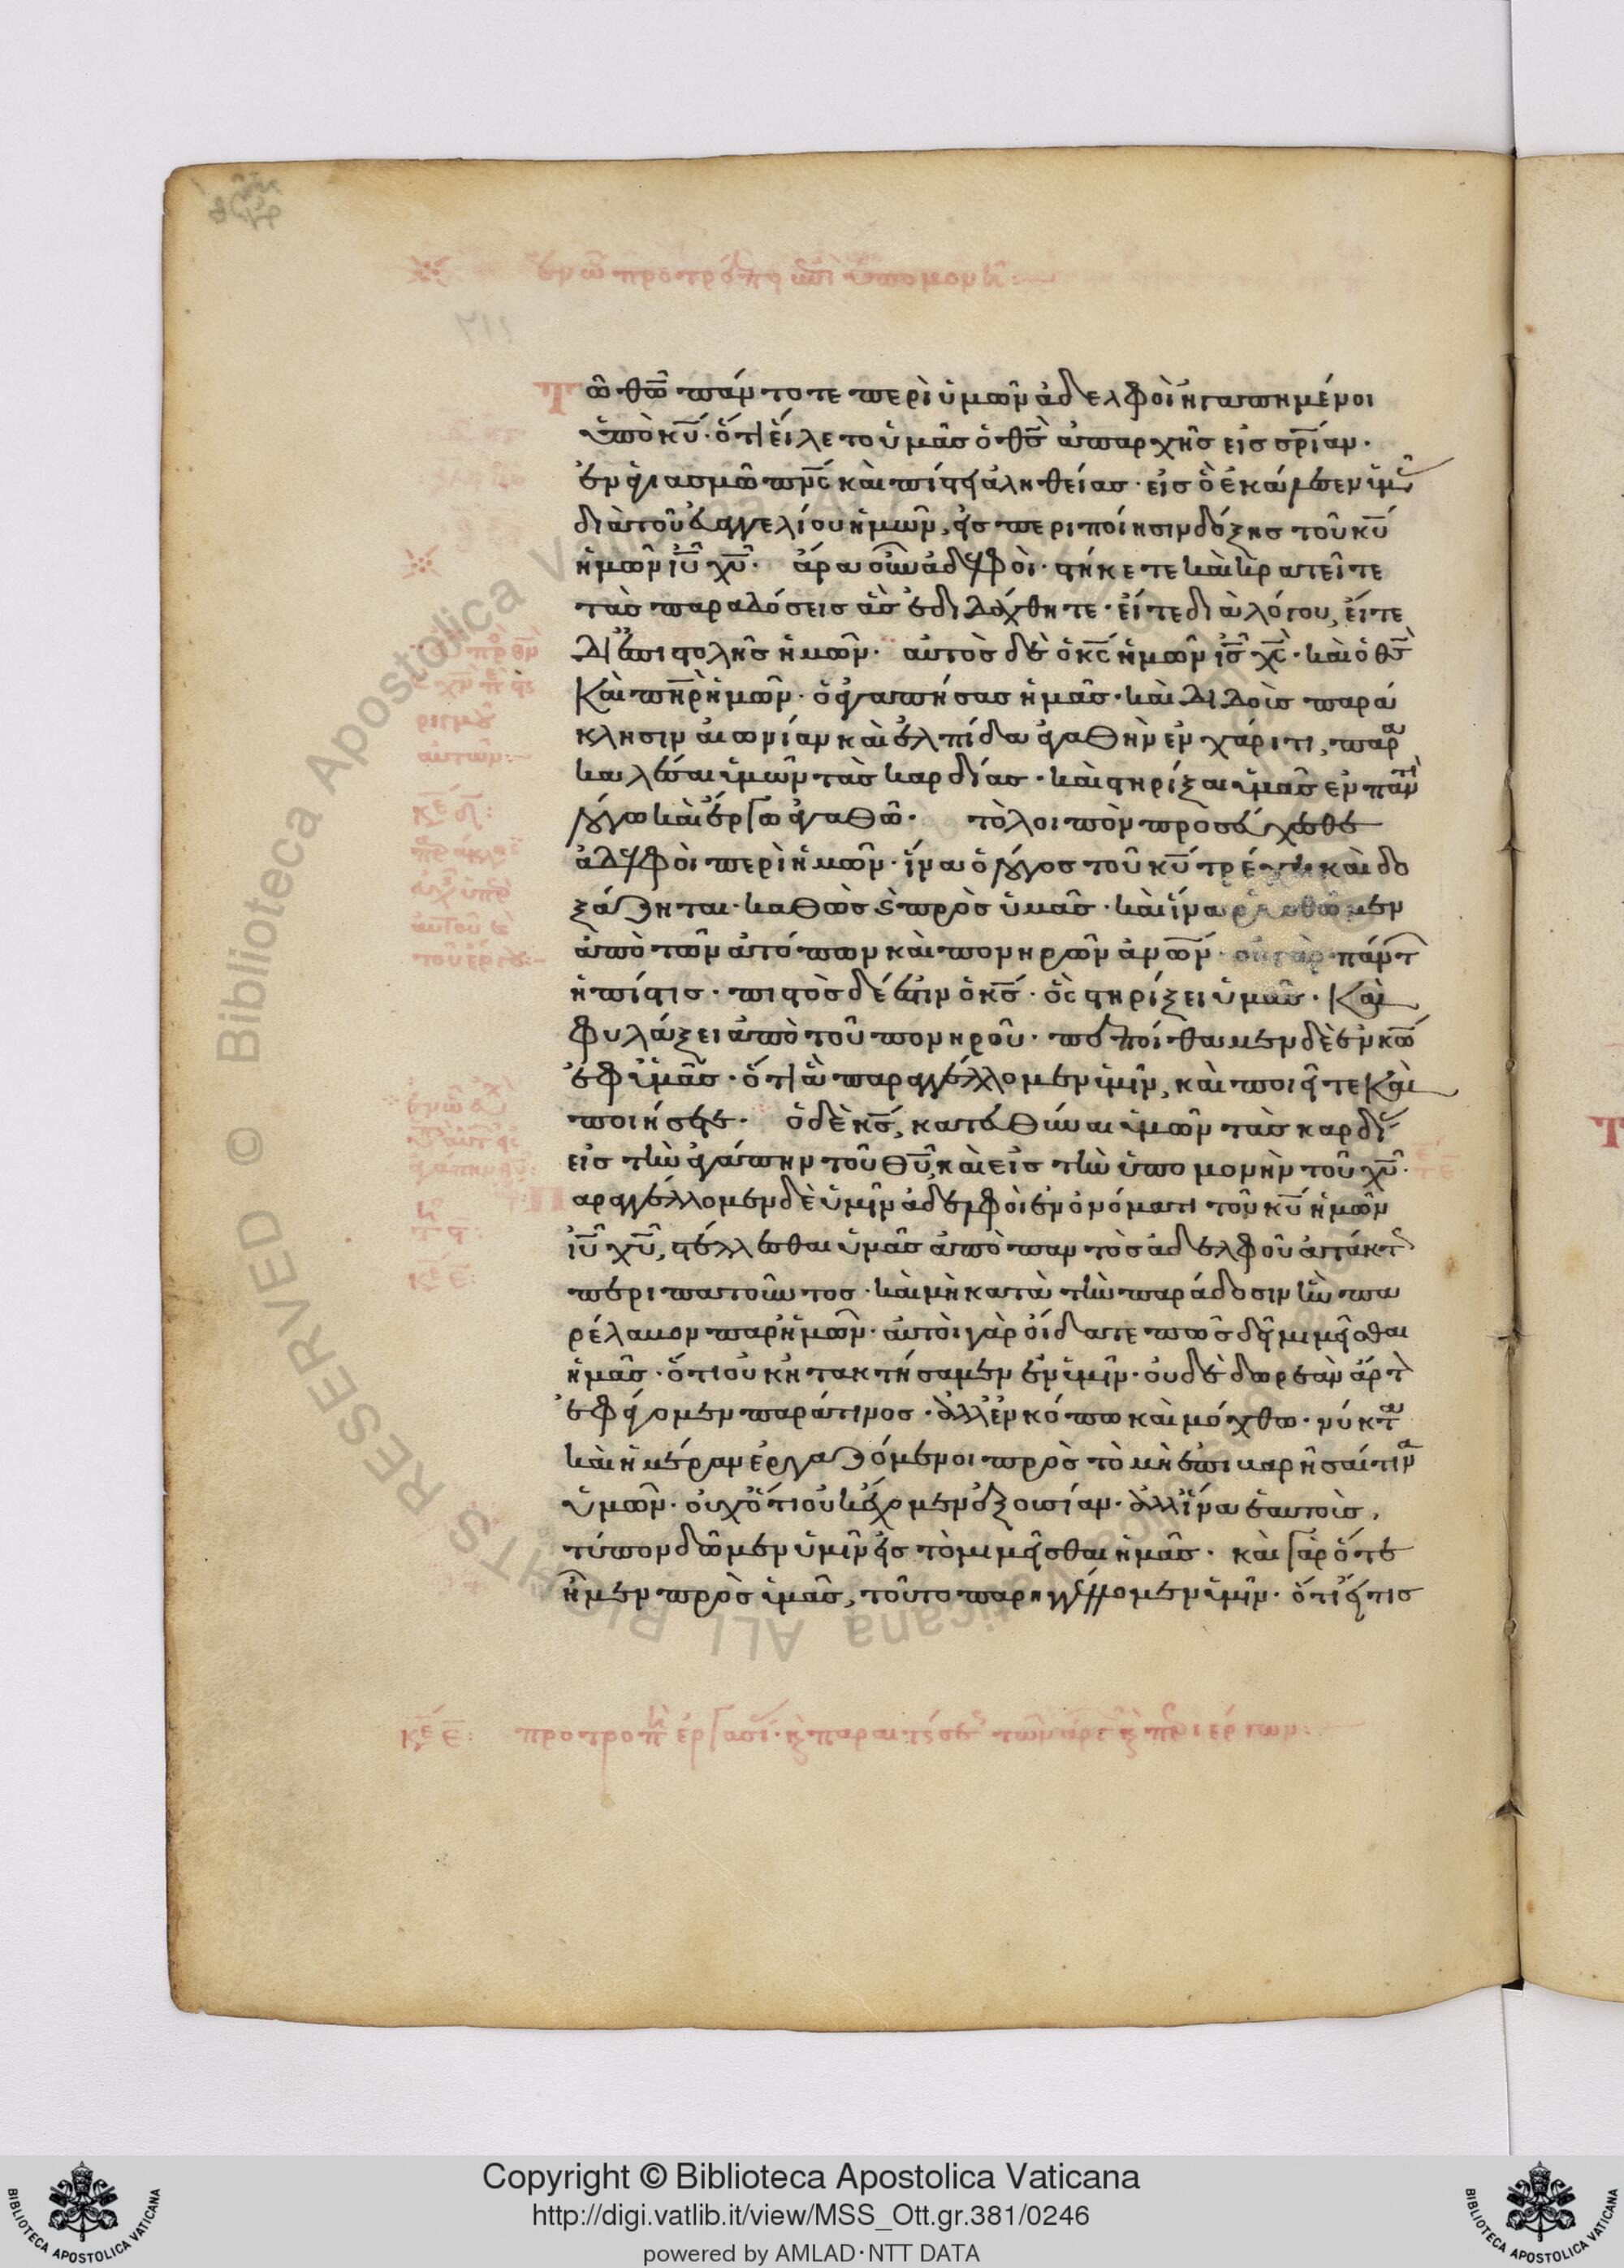 Τῶ θῶ πάντοτε περὶ ὑμῶν ἀδελφοὶ ἠγαπημένοι
ὑπὸ κυ· ὅτι εἵλετο ὑμᾶς ὁ θς ἀπαρχῆς εἰς σρίαν·
ἐν ἁγιασμῶ πνς καὶ πίστει ἀληθείας· εἰς ὃ ἐκάλεσεν ὑμᾶς
διὰ τοῦ εὐαγγελίου ἡμῶν, εἰς περιποίησιν δόξης τοῦ κυ
ἡμῶν ιυ χυ· ἄρα οὖν ἀδελφοὶ· στήκετε καὶ κρατεῖτε
τὰς παραδόσεις ἃς ἐδιδάχθητε· εἴτε διὰ λόγου, εἴτε
δι ἐπιστολῆς ἡμῶν· αὐτὸς δὲ ὁ κς ἡμῶν ις χς· καὶ ὁ θς
καὶ πηρ ἡμῶν· ὁ ἀγαπήσας ἡμᾶς· καὶ διδοὺς παρά
κλησιν αἰωνίαν καὶ ἐλπίδα ἀγαθὴν ἐν χάριτι, παρα
καλέσαι ὑμῶν τὰς καρδίας· καὶ στηρίξαι ὑμᾶς ἐν παντὶ
λόγω καὶ ἔργω ἀγαθῶ· τὸ λοιπὸν προσεύχεσθε
ἀδελφοὶ περὶ ἡμῶν· ἵνα ὁ λόγος τοῦ κυ τρέχη καὶ δο
ξάζηται· καθὼς καὶ πρὸς ὑμᾶς· καὶ ἵνα ῥυσθῶμεν
ἀπὸ τῶν ἀτόπων καὶ πονηρῶν ἀνων· οὐ γὰρ πάντων
ἡ πίστις· πιστὸς δέ ἐστιν ὁ κς· ὃς στηρίξει ὑμᾶς· καὶ
φυλάξει ἀπὸ τοῦ πονηροῦ· πεποίθαμεν δὲ ἐν κω
ἐφ ὑμᾶς· ὅτι ἃ παραγγέλλομεν ὑμῖν, καὶ ποιεῖτε καὶ
ποιήσετε· ὁ δὲ κς, κατευθύναι ὑμῶν τὰς καρδίας
εἰς τὴν ἀγάπην τοῦ θυ, καὶ εἰς τὴν ὑπομονὴν τοῦ χυ·
Παραγγέλλομεν δὲ ὑμῖν ἀδελφοὶ ἐν ὀνόματι τοῦ κυ ἡμῶν
ιυ χυ, στέλλεσθαι ὑμᾶς ἀπὸ παντὸς ἀδελφοῦ ἀτάκτως
περιπατοῦντος· καὶ μὴ κατὰ τὴν παράδοσιν ἣν πα
ρέλαβον παρ ἡμῶν· αὐτοὶ γὰρ οἴδατε πῶς δεῖ μιμεῖσθαι
ἡμᾶς· ὅτι οὐκ ἠτακτήσαμεν ἐν ὑμῖν· οὐδὲ δωρεὰν ἄρτον
ἐφάγομεν παρά τινος· ἀλλ ἐν κόπω καὶ μόχθω· νύκτα
καὶ ἡμέραν ἐργαζόμενοι πρὸς τὸ μὴ ἐπιβαρῆσαί τινα
ὑμῶν· οὐχ ὅτι οὐκ ἔχομεν ἐξουσίαν· ἀλλ ἵνα ἑαυτοὺς,
τύπον δῶμεν ὑμῖν εἰς τὸ μιμεῖσθαι ἡμᾶς· καὶ γὰρ ὅτε
ἦμεν πρὸς ὑμᾶς, τοῦτο παρηγγέλλομεν ὑμῖν· ὅτι εἴ τις
Copyright © Biblioteca Apostolica Vaticana
http://digi.vatlib.it/view/MSS_Ott.gr.381/0246
powered by AMLAD·NTT DATA